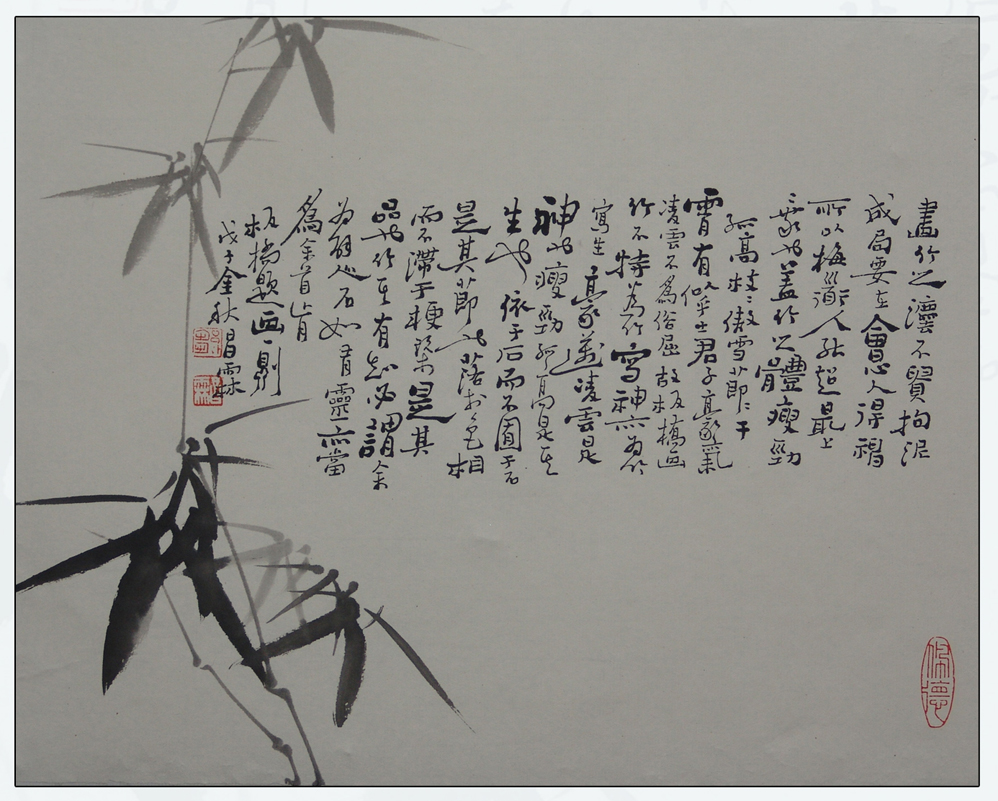 畫竹之灋不貴拘泥
成局要在會心人得神
所以梅道人能超最上
乘也蓋竹之體瘦勁
孤高枝〻傲雪節〻干
霄有似乎士君子豪氣
凌雲不為俗屈故板橋画
竹不特為竹寫神亦為竹
寫生豪邁凌雲是
神也瘦勁孤高是其
生也依于石而不囿于石
是其節也落於色相
而不滯于梗槩是其
品也竹其有知必謂余
為解人石如有靈亦當
為余首肯
板橋題画一則
戊子金秋昌霖